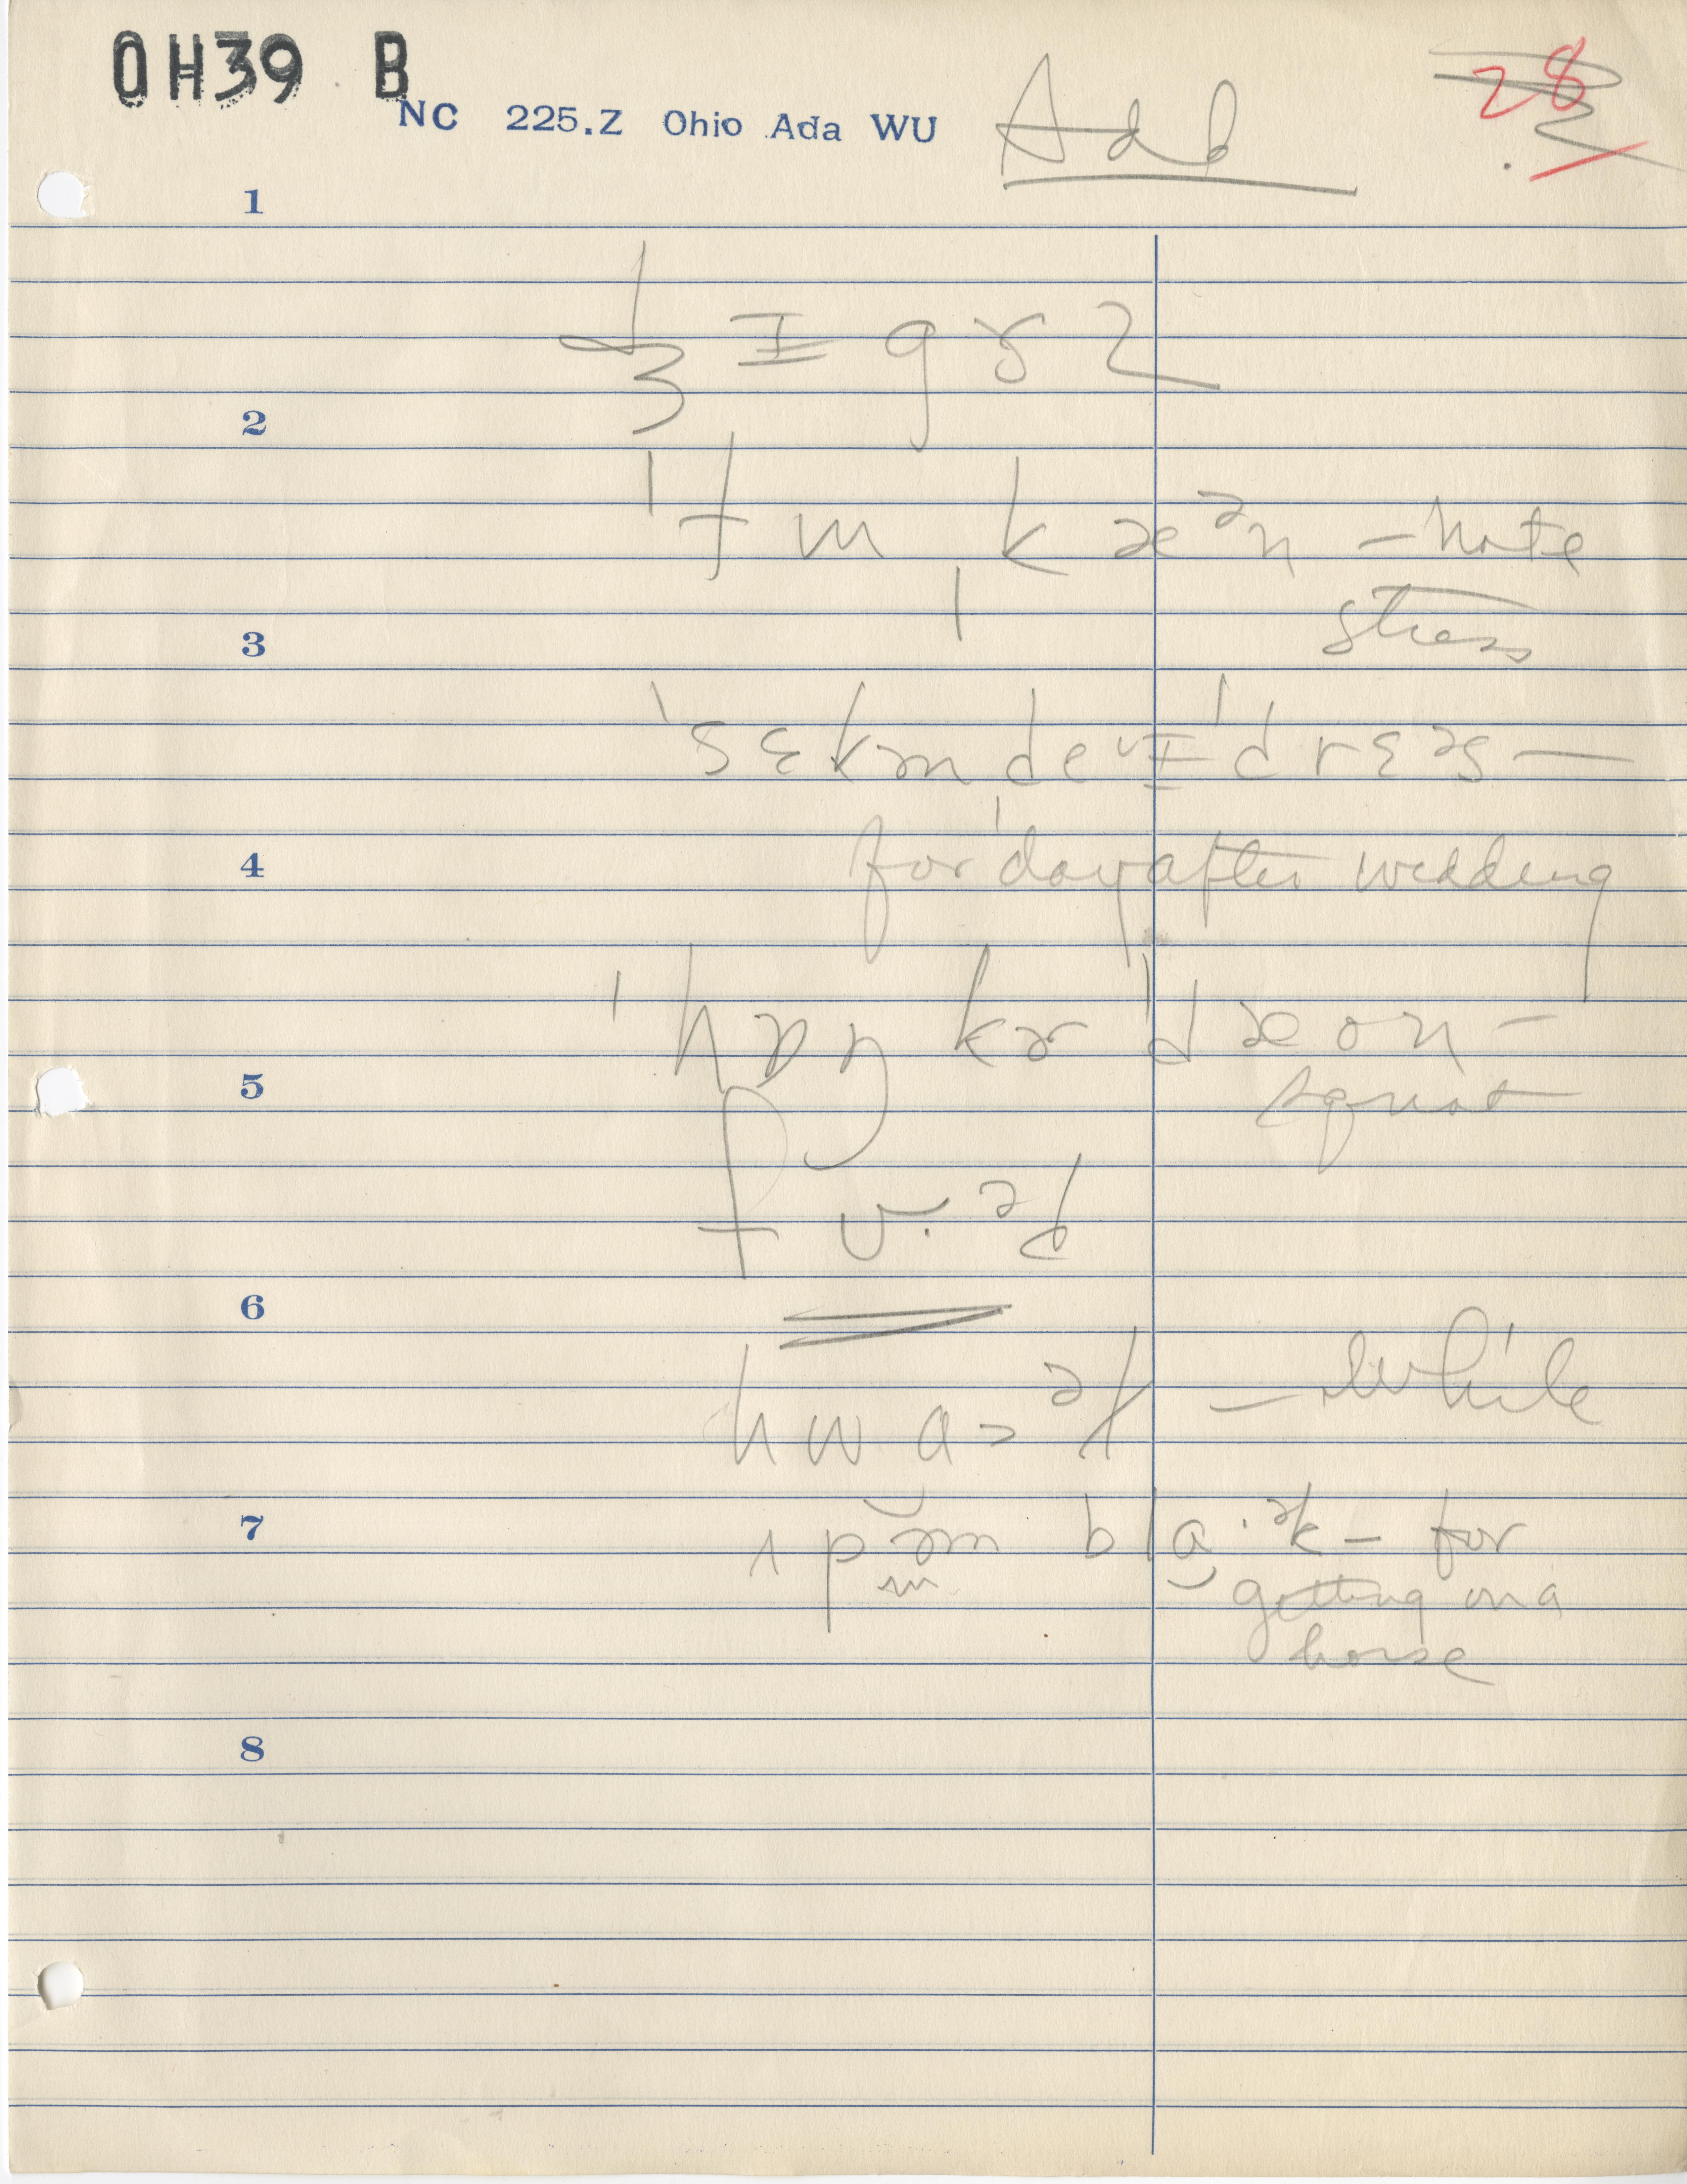 OH39 B
NC 225.Z Ohio Ada WU Add 28
1
ɟɪgɤz
2
ˈfm ˌkæᵊn – note
stress
3
ˈsɛkn de ɪ ˈdrɛᵊs —
for day after wedding
4
ˈhɒŋkɚ ˈdæon –
squat
5
fʊ·ᵊd
6
hwa>ᵊl – while
7
ʌpə̆m bla·ᵊk – for
getting on a
horse
8